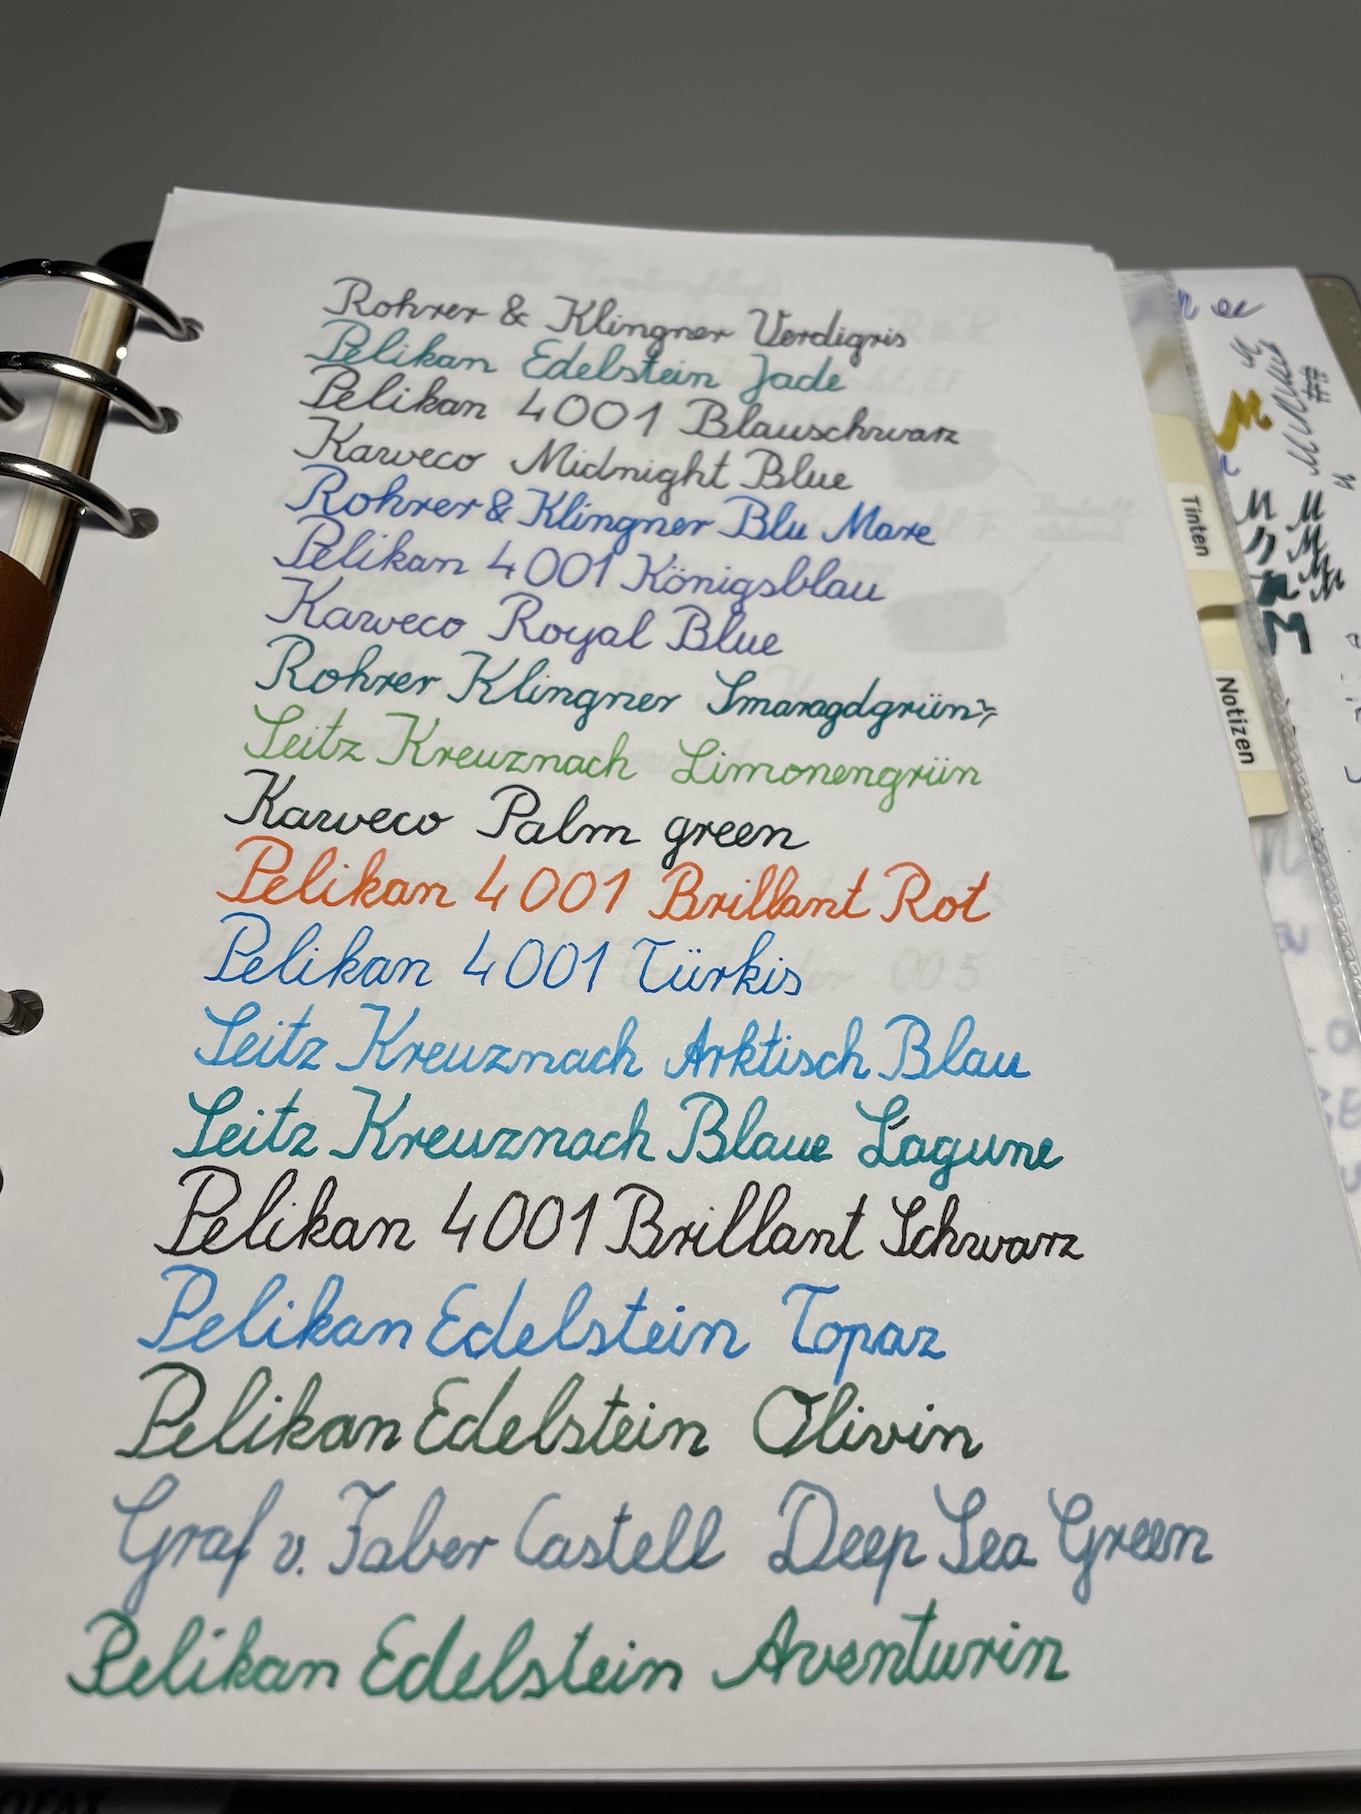 Rohrer & Klingner Verdigris
Pelikan Edelstein Jade
Pelikan 4001 Blauschwarz
Kaweco Midnight Blue
Rohrer & Klingner Blu Mare
Pelikan 4001 Königsblau
Kaweco Royal Blue
Rohrer Klingner Smaragdgrün
Seitz Kreuznach Limonengrün
Kaweco Palm green
Pelikan 4001 Brillant Rot
Pelikan 4001 Türkis
Seitz Kreuznach Arktisch Blau
Seitz Kreuznach Blaue Lagune
Pelikan 4001 Brillant Schwarz
Pelikan Edelstein Topaz
Pelikan Edelstein Olivin
Graf v. Faber Castell Deep Sea Green
Pelikan Edelstein Aventurin
Tinten
Notizen